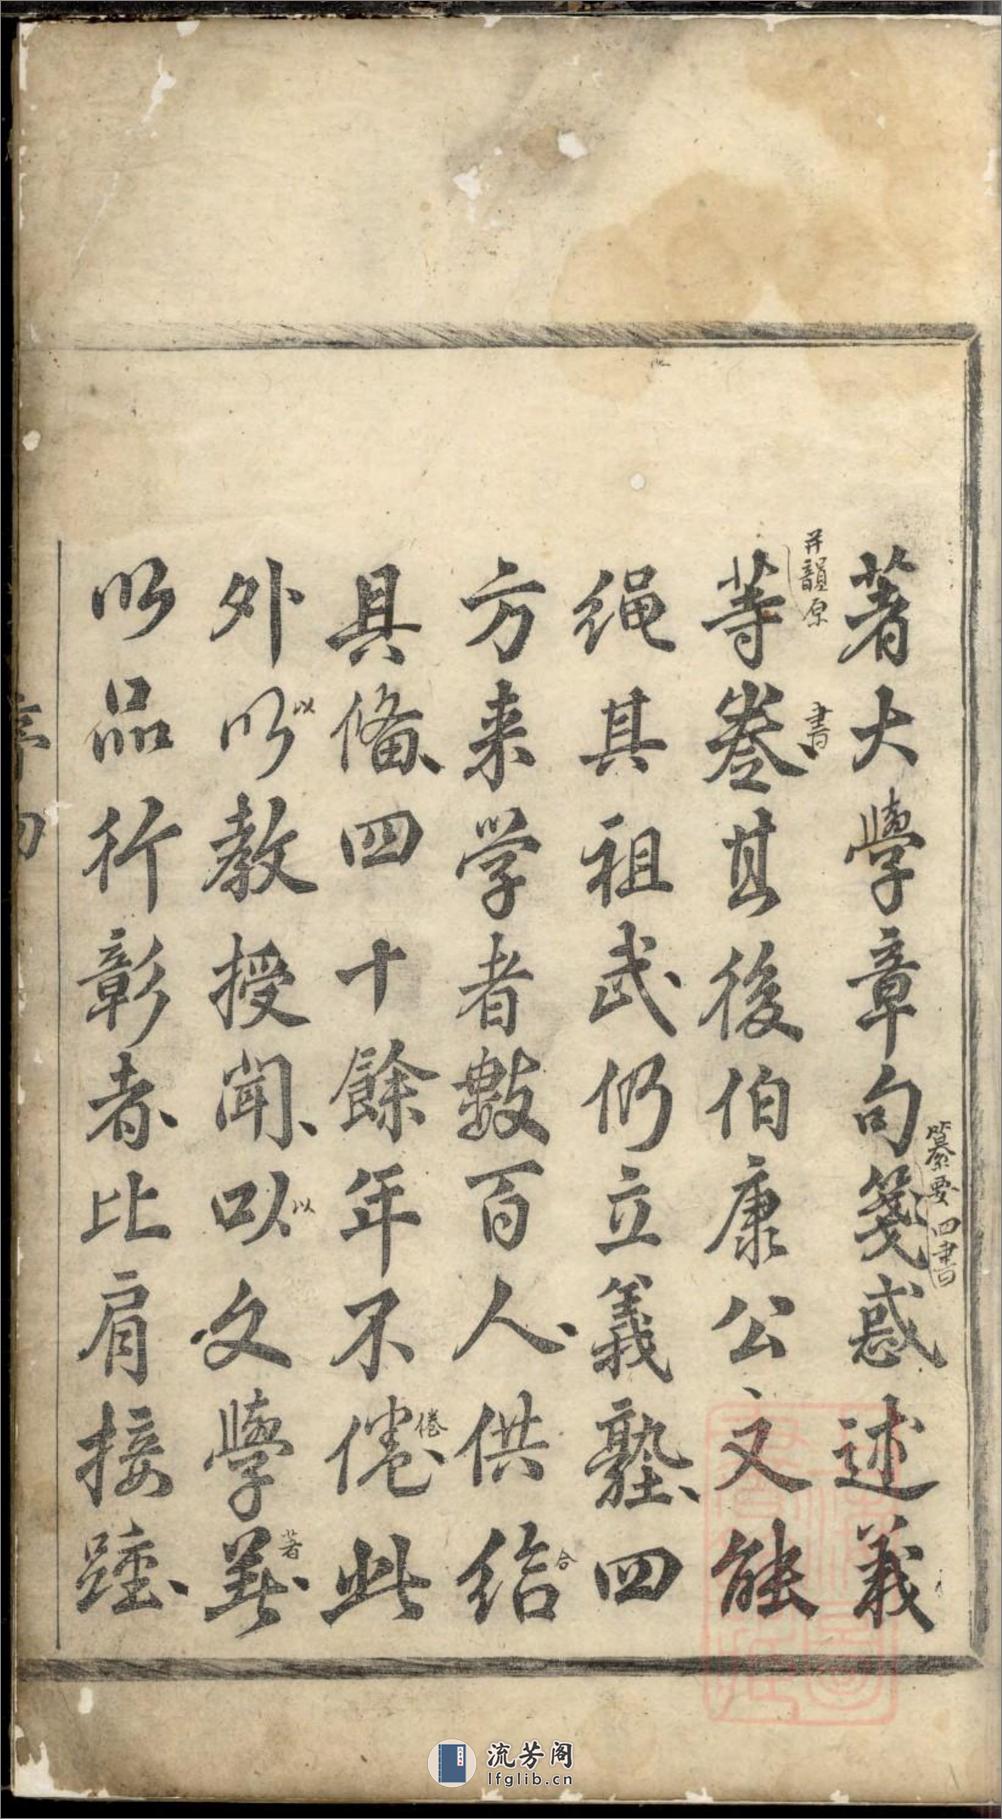 著大學章句箋惑述義
纂要四書
并韻原
等巻其後伯康公又能
書
繩其祖武仍立義塾四
方来学者數百人供給
合
具備四十餘年不倦此
倦
外以教授聞以文學著
以
以
著
以品行彰者比肩接踵
流芳阁
lfglib.cn